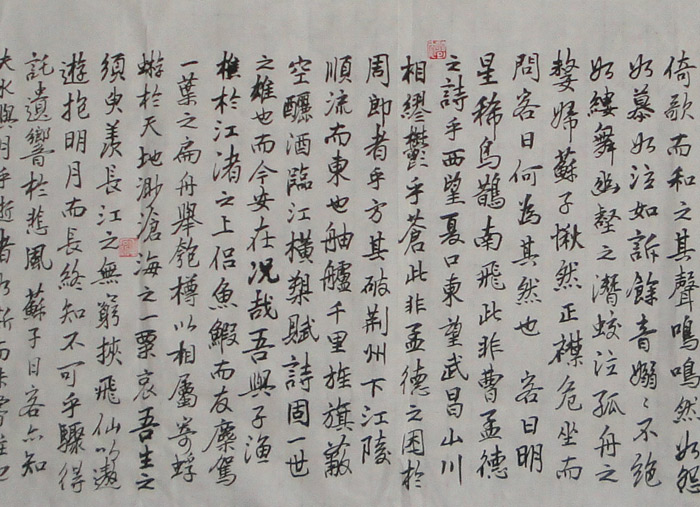 倚歌而和之其聲鳴鳴然如怨
如慕如泣如訴餘音嫋〻不絕
如縷舞幽壑之潛蛟泣孤舟之
嫠婦蘇子愀然正襟危坐而
問客曰何為其然也 客曰明
星稀烏鵲南飛此非曹孟德
之詩乎西望夏口東望武昌山川
相繆鬱乎蒼此非孟德之困於
周郎者乎方其破荊州下江陵
順流而東也舳艫千里旌旗蔽
空釃酒臨江橫槊賦詩固一世
之雄也而今安在况哉吾與子漁
樵於江渚之上侶魚鰕而友麋駕
一葉之扁舟舉匏樽以相屬寄蜉
蝣於天地渺滄海之一粟哀吾生之
須臾羨長江之無窮挾飛仙以遨
遊抱明月而長終知不可乎驟得
託遺響於悲風 蘇子曰客亦知
夫水與月乎逝者如斯而未嘗往也